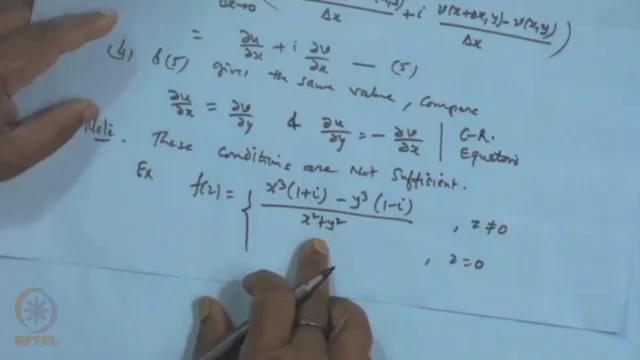 Δx→0 Δx + i v(x+Δx,y) - v(x,y)
Δx
= ∂u/∂x + i ∂v/∂x — (5)
(4) & (5) gives the same value, Compare
∂u/∂x = ∂v/∂y & ∂u/∂y = - ∂v/∂x | C-R.
Equations
Note. These conditions are Not sufficient.
Ex f(z) = { x³(1+i) - y³(1-i)
x²+y² , z≠0
, z=0
NPTEL